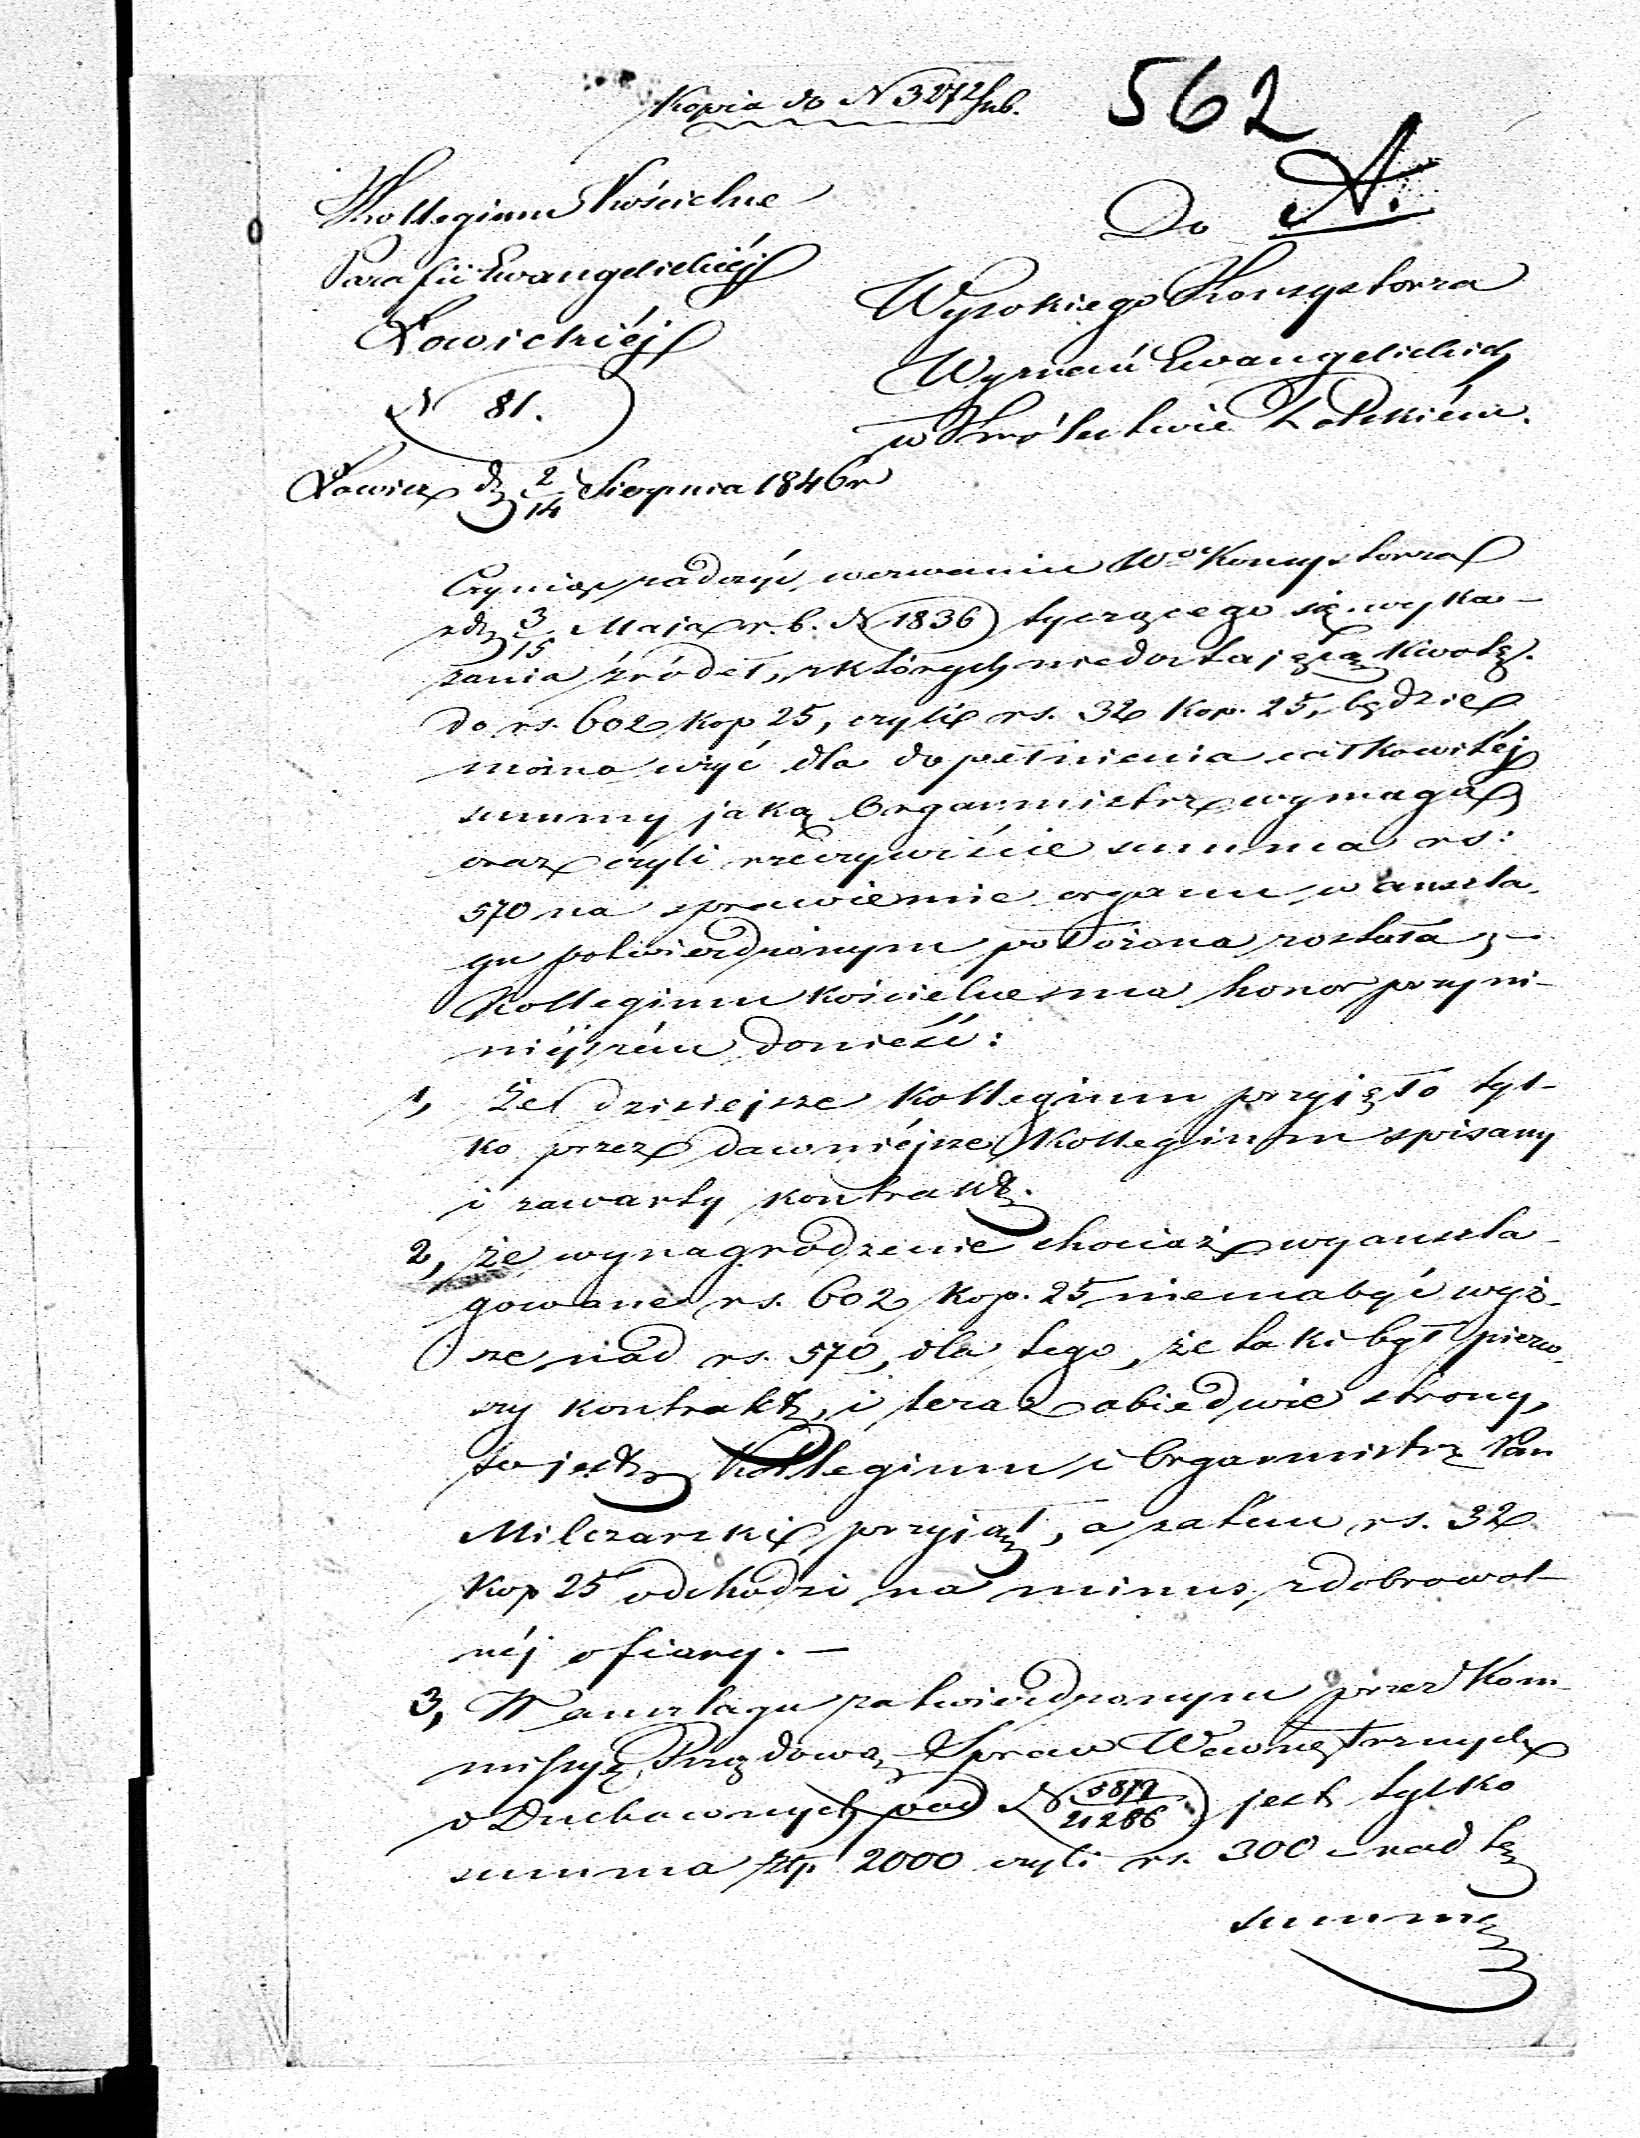 Kopia do N 3272 Sub.
562
A.
Kollegium Kościelne
Parafii Ewangelickiéj
Łowickiéj
N 81.
Łowicz d. 2/14 Sierpnia 1846 r
Do
Wysokiego Konsystorza
Wyznań Ewangelickich
w Królestwie Polskiém.
Czyniąc zadosyć wezwaniu Wgo Konsystorza
z d. 3/15 Maja r. b. N 1836 tyczącego się wyka-
zania źródeł, z których niedostającą kwotę
do rs. 602 kop 25, czyli rs. 32 kop. 25, będzie
można wziąć dla dopełnienia całkowitéj
summy jaką Organmistrz wymaga
oraz czyli rzeczywiście summa rs:
570 na sprawienie organu w anszla-
gu potwierdzonym położona została,
Kollegium Kościelne ma honor przyni-
niejszém donieść:
1, Że dzisiejsze Kollegium przyjęło tyl-
ko przez dawniéjsze Kollegium spisany
i zawarty kontrakt.
2, że wynagrodzenie chociaż wyanszla-
gowane rs. 602 kop. 25 niema być wyż-
sze nad rs. 570, dla tego, że taki był pierw-
szy kontrakt, i teraz obiedwie strony,
to jest Kollegium i Organmistrz Pan
Milczarski przyjął, a zatem rs. 32
kop 25 odchodzi na minus z dobrowol-
néj ofiary. —
3, W anszlagu zatwierdzonym przez Kom-
missyę Rządową Spraw Wewnętrznych
i Duchownych pod N 21286 jest tylko
summa złp. 2000 czyli rs. 300 nad tę
summę